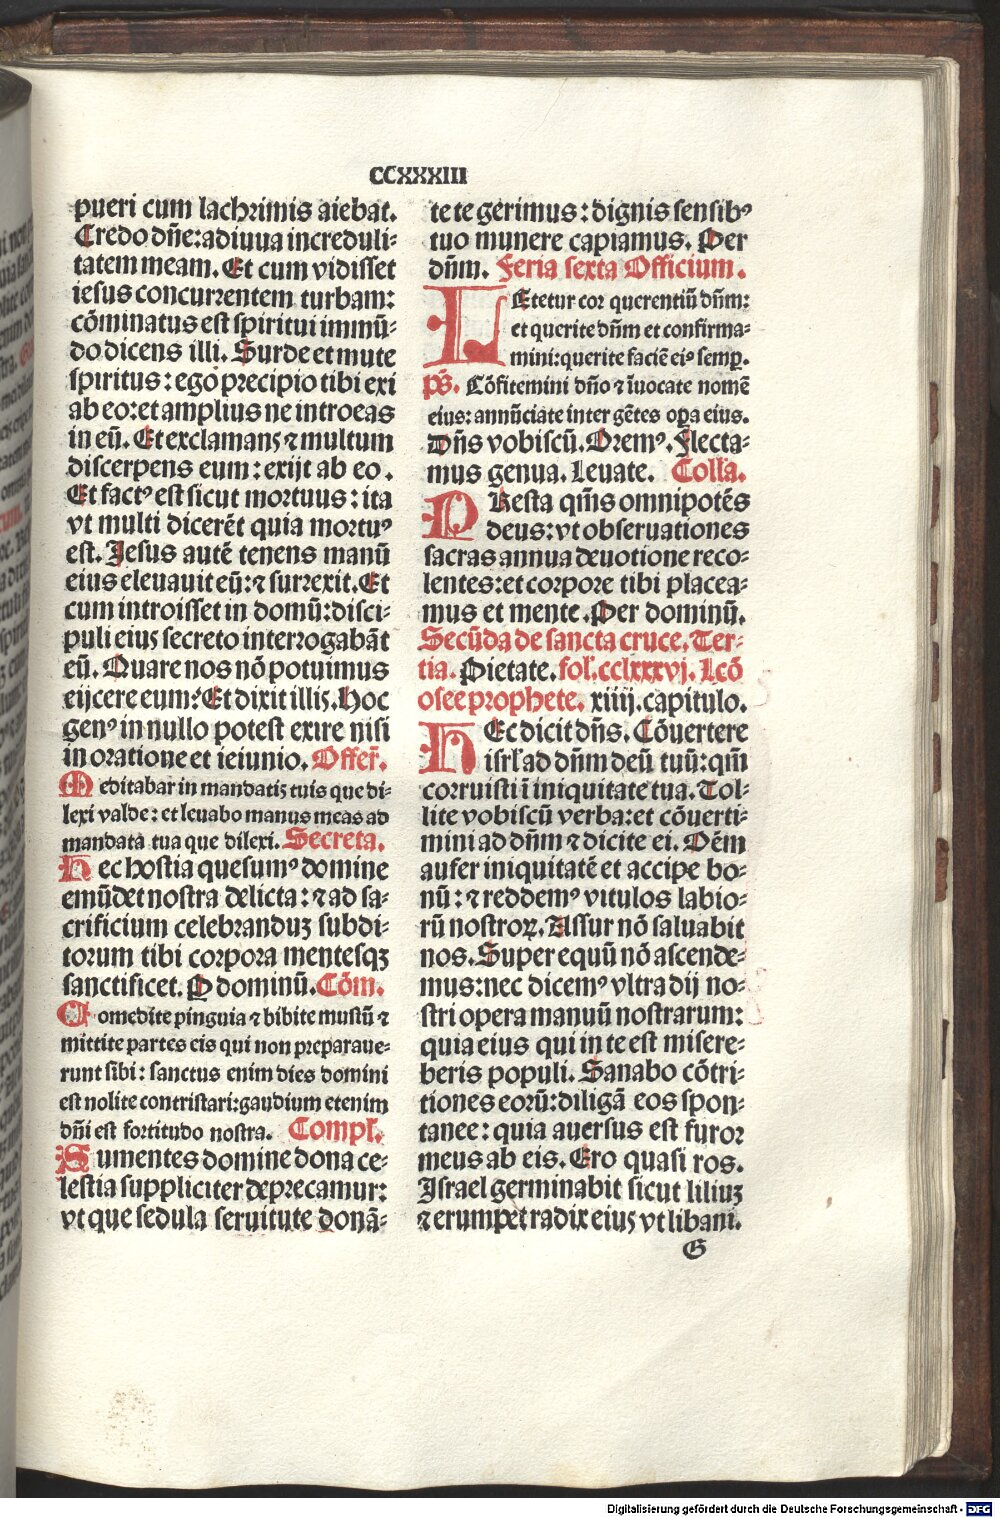 CCXXXIII
pueri cum lachrimis aiebat.
Credo dñe: adiuua increduli⸗
tatem meam. Et cum vidisset
iesus concurrentem turbam:
cōminatus est spiritui immū⸗
do dicens illi. Surde et mute
spiritus: ego precipio tibi exi
ab eo: et amplius ne introeas
in eū. Et exclamans ⁊ multum
discerpens eum: exijt ab eo.
Et factꝰ est sicut mortuus: ita
vt multi dicerēt quia mortuꝰ
est. Jesus autē tenens manū
eius eleuauit eū: ⁊ surrexit. Et
cum introisset in domū: disci⸗
puli eius secreto interrogabāt
eū. Quare nos nō potuimus
eijcere eum? Et dixit illis. Hoc
genꝰ in nullo potest exire nisi
in oratione et ieiunio. Offer̄.
Meditabar in mandatis tuis que di⸗
lexi valde: et leuabo manus meas ad
mandata tua que dilexi. Secreta.
Hec hostia quesumꝰ domine
emūdet nostra delicta: ⁊ ad sa⸗
crificium celebranduꝫ subdi⸗
torum tibi corpora mentesqꝫ
sanctificet. P dominū. Cōm.
Comedite pinguia ⁊ bibite mustū ⁊
mittite partes eis qui non preparaue⸗
runt sibi: sanctus enim dies domini
est nolite contristari: gaudium etenim
dñi est fortitudo nostra. Compl̄.
Sumentes domine dona ce⸗
lestia suppliciter deprecamur:
vt que sedula seruitute donā⸗
te te gerimus: dignis sensibꝰ
tuo munere capiamus. Per
dñm. Feria sexta Officium.
LEtetur cor querentiū dñm:
et querite dñm et confirma⸗
mini: querite faciē eiꝰ semꝑ.
p̄s. Cōfitemini dño ⁊ īuocate nomē
eius: annūciate inter gētes oꝑa eius.
Dñs vobiscū. Oremꝰ. Flecta⸗
mus genua. Leuate. Coll̄a.
PResta qm̄s omnipotēs
deus: vt obseruationes
sacras annua deuotione reco⸗
lentes: et corpore tibi placea⸗
mus et mente. Per dominū.
Secūda de sancta cruce. Ter⸗
tia. Pietate. fol. cclxxxvj. Lcō
osee prophete. xiiij. capitulo.
HEc dicit dñs. Cōuertere
isrl̄ ad dñm deū tuū: qm̄
corruisti ī iniquitate tua. Tol⸗
lite vobiscū verba: et cōuerti⸗
mini ad dñm ⁊ dicite ei. Oēm
aufer iniquitatē et accipe bo⸗
nū: ⁊ reddemꝰ vitulos labio⸗
rū nostroꝝ. Assur nō saluabit
nos. Super equū nō ascende⸗
mus: nec dicemꝰ vltra dij no⸗
stri opera manuū nostrarum:
quia eius qui in te est misere⸗
beris populi. Sanabo cōtri⸗
tiones eorū: diligā eos spon⸗
tanee: quia auersus est furor
meus ab eis. Ero quasi ros.
Israel germinabit sicut liliuꝫ
⁊ erumpet radix eius vt libani.
G
Digitalisierung gefördert durch die Deutsche Forschungsgemeinschaft - DFG